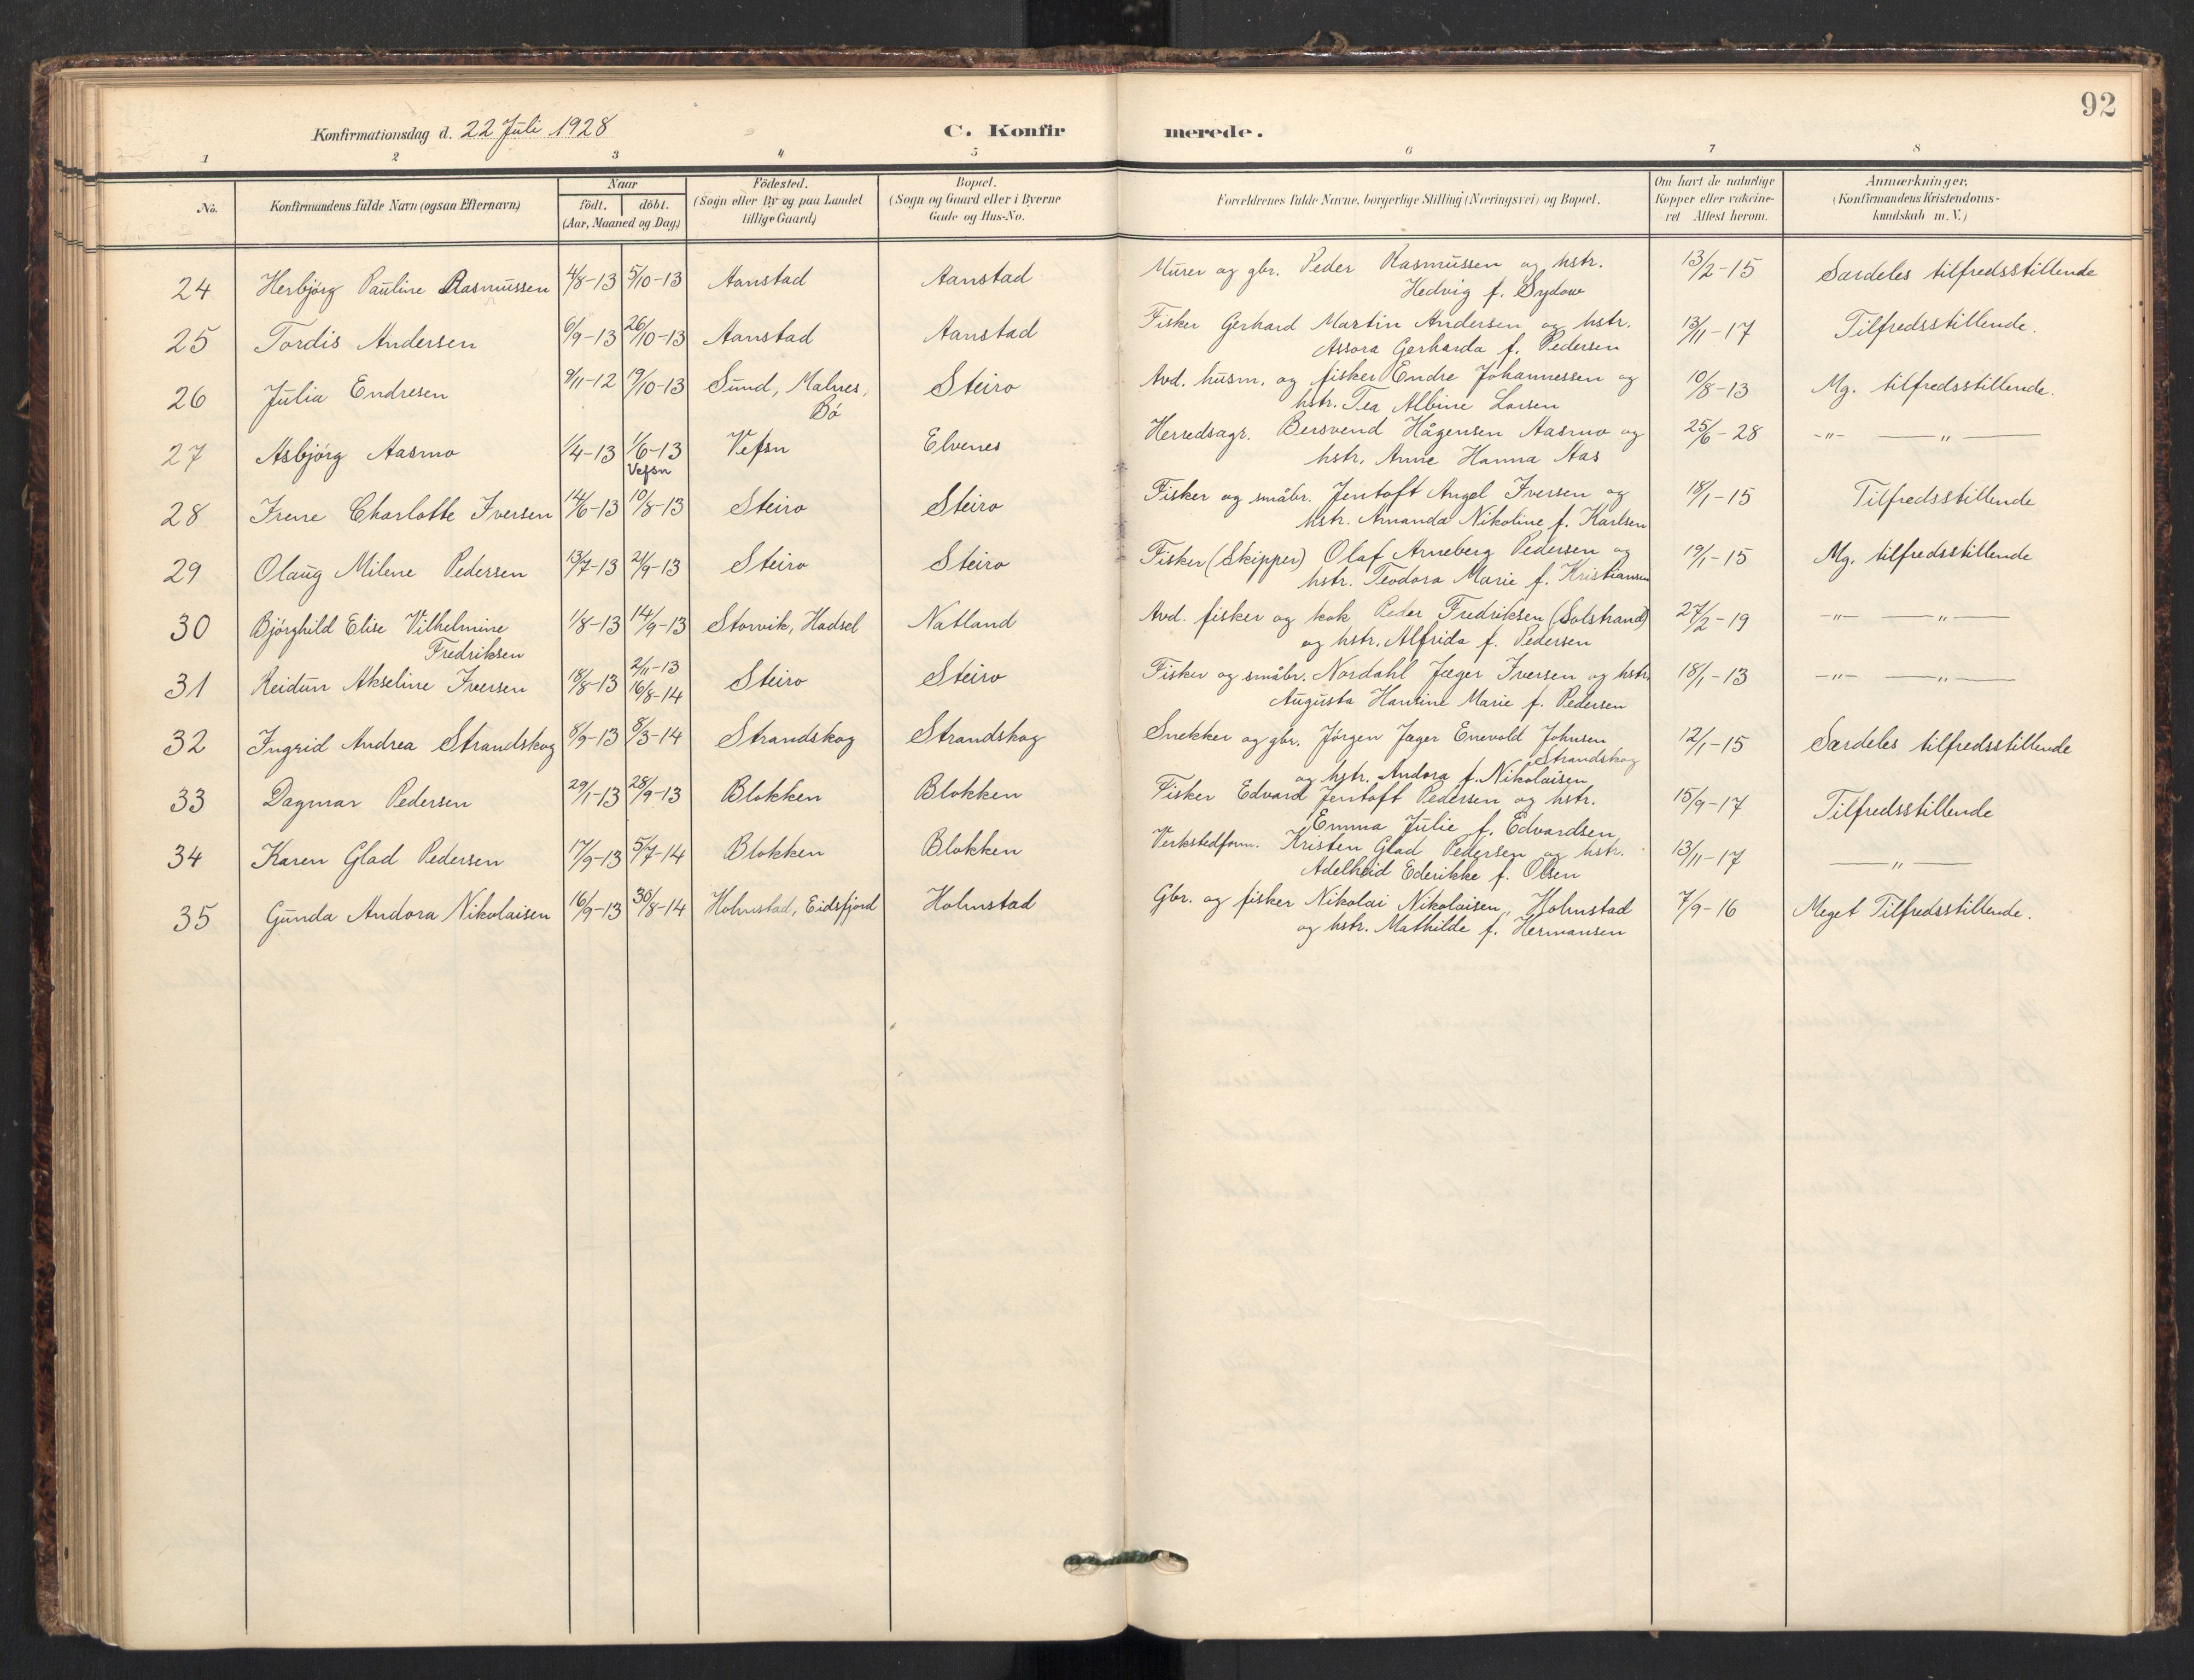 92
Konfirmationsdag d. 22 Juli 1928 C. Konfirmerede.
1 2 3 4 5 6 7 8
No. Konfirmandens fulde Navn (ogsaa Efternavn) Naar födt. döbt. (Aar, Maaned og Dag) Födested. (Sogn eller By og paa Landet tillige Gaard) Bopæl. (Sogn og Gaard eller i Byerne Gade og Hus-No. Forældrenes fulde Navne, borgerlige Stilling (Næringsvei) og Bopæl. Om havt de naturlige Kopper eller vakcineret Attest herom. Anmærkninger. (Konfirmandens Kristendomskundskab m. V.)
24 Herbjørg Pauline Rasmussen 4/8-13 5/10-13 Aanstad Aanstad Murer og gbr. Peder Rasmussen og hstr. 13/2-15 Særdeles tilfredsstillende
Hedvig f. Sydow
25 Tordis Andersen 6/9-13 26/10-13 Aanstad Aanstad Fisker Gerhard Martin Andersen og hstr. 13/11-17 Tilfredsstillende.
Assora Gerharda f. Pedersen
26 Julia Endresen 9/11-12 19/10-13 Sund, Malnes, Steiro Avd. husm. og fisker Endre Johannessen og 10/8-13 Mg. tilfredsstillende.
Bø hstr. Tea Albine Larsen
27 Asbjørg Aasmo 1/4-13 1/6-13 Vefsn Elvenes Herredsagr. Bersvend Hågensen Aasmo og 25/6-28 -"- — " —
Vefsn hstr. Anne Hanna Aas
28 Irene Charlotte Iversen 14/6-13 10/8-13 Steiro Steiro Fisker og småbr. Jentoft Angel Iversen og 18/1-15 Tilfredsstillende
hstr. Amanda Nikoline f. Karlsen
29 Olaug Milene Pedersen 13/7-13 21/9-13 Steiro Steiro Fisker (Skipper) Olaf Arneberg Pedersen og 19/1-15 Mg. tilfredsstillende
hstr. Teodora Marie f. Kristiansen
30 Bjørghild Elise Vilhelmine 1/8-13 14/9-13 Storvik, Hadsel Natland Avd. fisker og kok Peder Fredriksen (Solstrand) 27/2-19 -"- — " —
Fredriksen og hstr. Alfrida f. Pedersen
31 Reidun Akseline Iversen 18/8-13 2/11-13 16/8-14 Steiro Steiro Fisker og småbr. Nordahl Jæger Iversen og hstr. 18/1-13 -"- — " —
Augusta Hansine Marie f. Pedersen
32 Ingrid Andrea Strandskog 8/9-13 8/3-14 Strandskog Strandskog Snekker og gbr. Jørgen Jæger Enevold Johnsen 12/1-15 Særdeles tilfredsstillende
Strandskog
og hstr. Andora f. Nikolaisen
33 Dagmar Pedersen 29/1-13 28/9-13 Blokken Blokken Fisker Edvard Jentoft Pedersen og hstr. 15/9-17 Tilfredsstillende
Emma Julie f. Edvardsen
34 Karen Glad Pedersen 17/9-13 5/7-14 Blokken Blokken Verkstedform. Kristen Glad Pedersen og hstr. 13/11-17 — " —
Adelheid Ederikke f. Olsen
35 Gunda Andora Nikolaisen 16/9-13 30/8-14 Holmstad, Eidsfjord Holmstad Gbr. og fisker Nikolai Nikolaisen, Holmstad 7/9-16 Meget Tilfredsstillende.
og hstr. Mathilde f. Hermansen